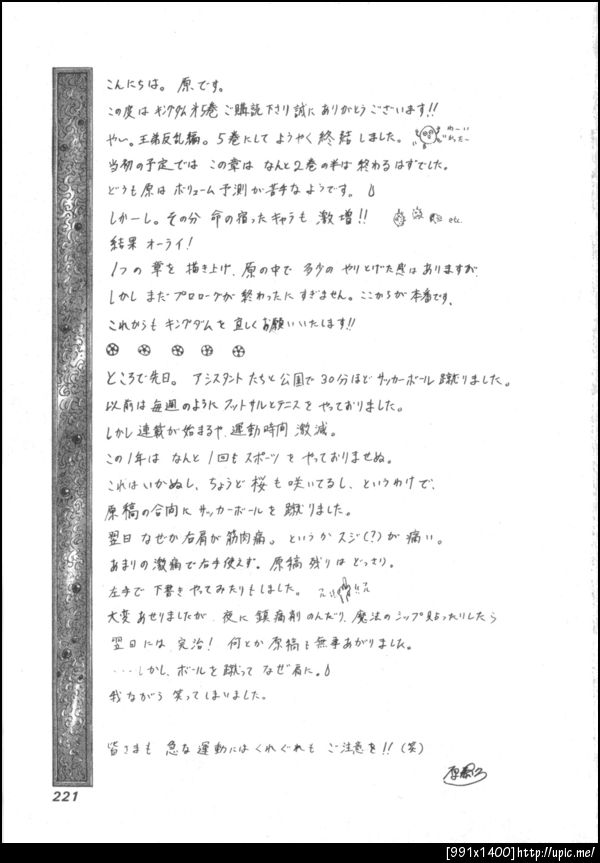 こんにちは。原です。
この度は キングダム 第5巻 ご購読下さり誠に ありがとうございます!!
やー。王弟反乱編。5巻にして ようやく 終結しました。わーい
当初の予定では この章は なんと2巻の半ば 終わるはずでした。
どうも原は ボリューム予測が苦手なようです。
しかーし。その分 命の宿ったキャラも 激増!! etc.
結果オーライ!
1つの章を 描き上げ、原の中で 多少の やりとげた感は ありますが、
しかし まだ プロローグが 終わったに すぎません。ここからが本番です。
これからも キングダムを 宜しくお願いいたします!!
ところで先日。アシスタントたちと公園で 30分ほど サッカーボール 蹴りました。
以前は毎週のように フットサルとテニスを やっておりました。
しかし連載が始まるや、運動時間 激減。
この1年は なんと1回もスポーツを やっておりませぬ。
これはいかぬし、ちょうど桜も 咲いてるし、というわけで、
原稿の合間に サッカーボールを 蹴りました。
翌日 なぜか右肩が筋肉痛。というか スジ(?)が 痛い。
あまりの激痛で右手使えず。原稿残りは どっさり。
左手で 下書き やってみたりもしました。
大変あせりましたが、夜に 鎮痛剤のんだり、魔法のシップ貼ったりしたら
翌日には 完治! 何とか 原稿も 無事あがりました。
…しかし、ボールを蹴って なぜ肩に。
我ながら 笑ってしまいました。
皆さまも 急な運動には くれぐれも ご注意を!!(笑)
原泰久
221
[991x1400]http://upic.me/